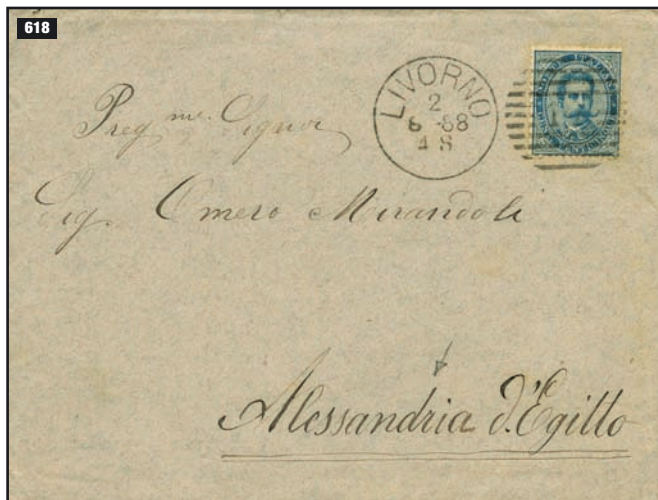 618
LIVORNO
2
8 88
4 S
Preg.me Signor
Sig. Omero Mirandoli
Alessandria d'Egitto